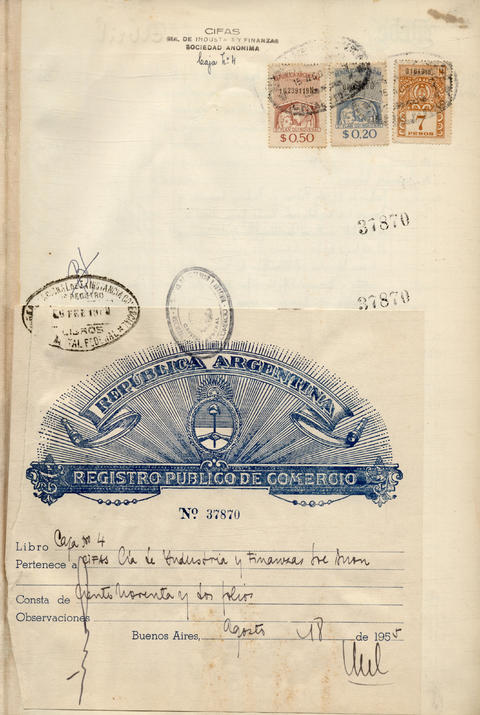 CIFAS
CIA. DE INDUSTRIA Y FINANZAS
SOCIEDAD ANONIMA
Caja Nº 4
$ 0.50
$ 0.20
7
PESOS
37870
37870
REGISTRO
LIBROS
REPUBLICA ARGENTINA
REGISTRO PUBLICO DE COMERCIO
Nº 37870
Libro Caja Nº 4
Pertenece a CIFAS Cía de Industria y Finanzas Soc Anon
Consta de Ciento Noventa y dos folios
Observaciones
Buenos Aires, Agosto 18 de 1955